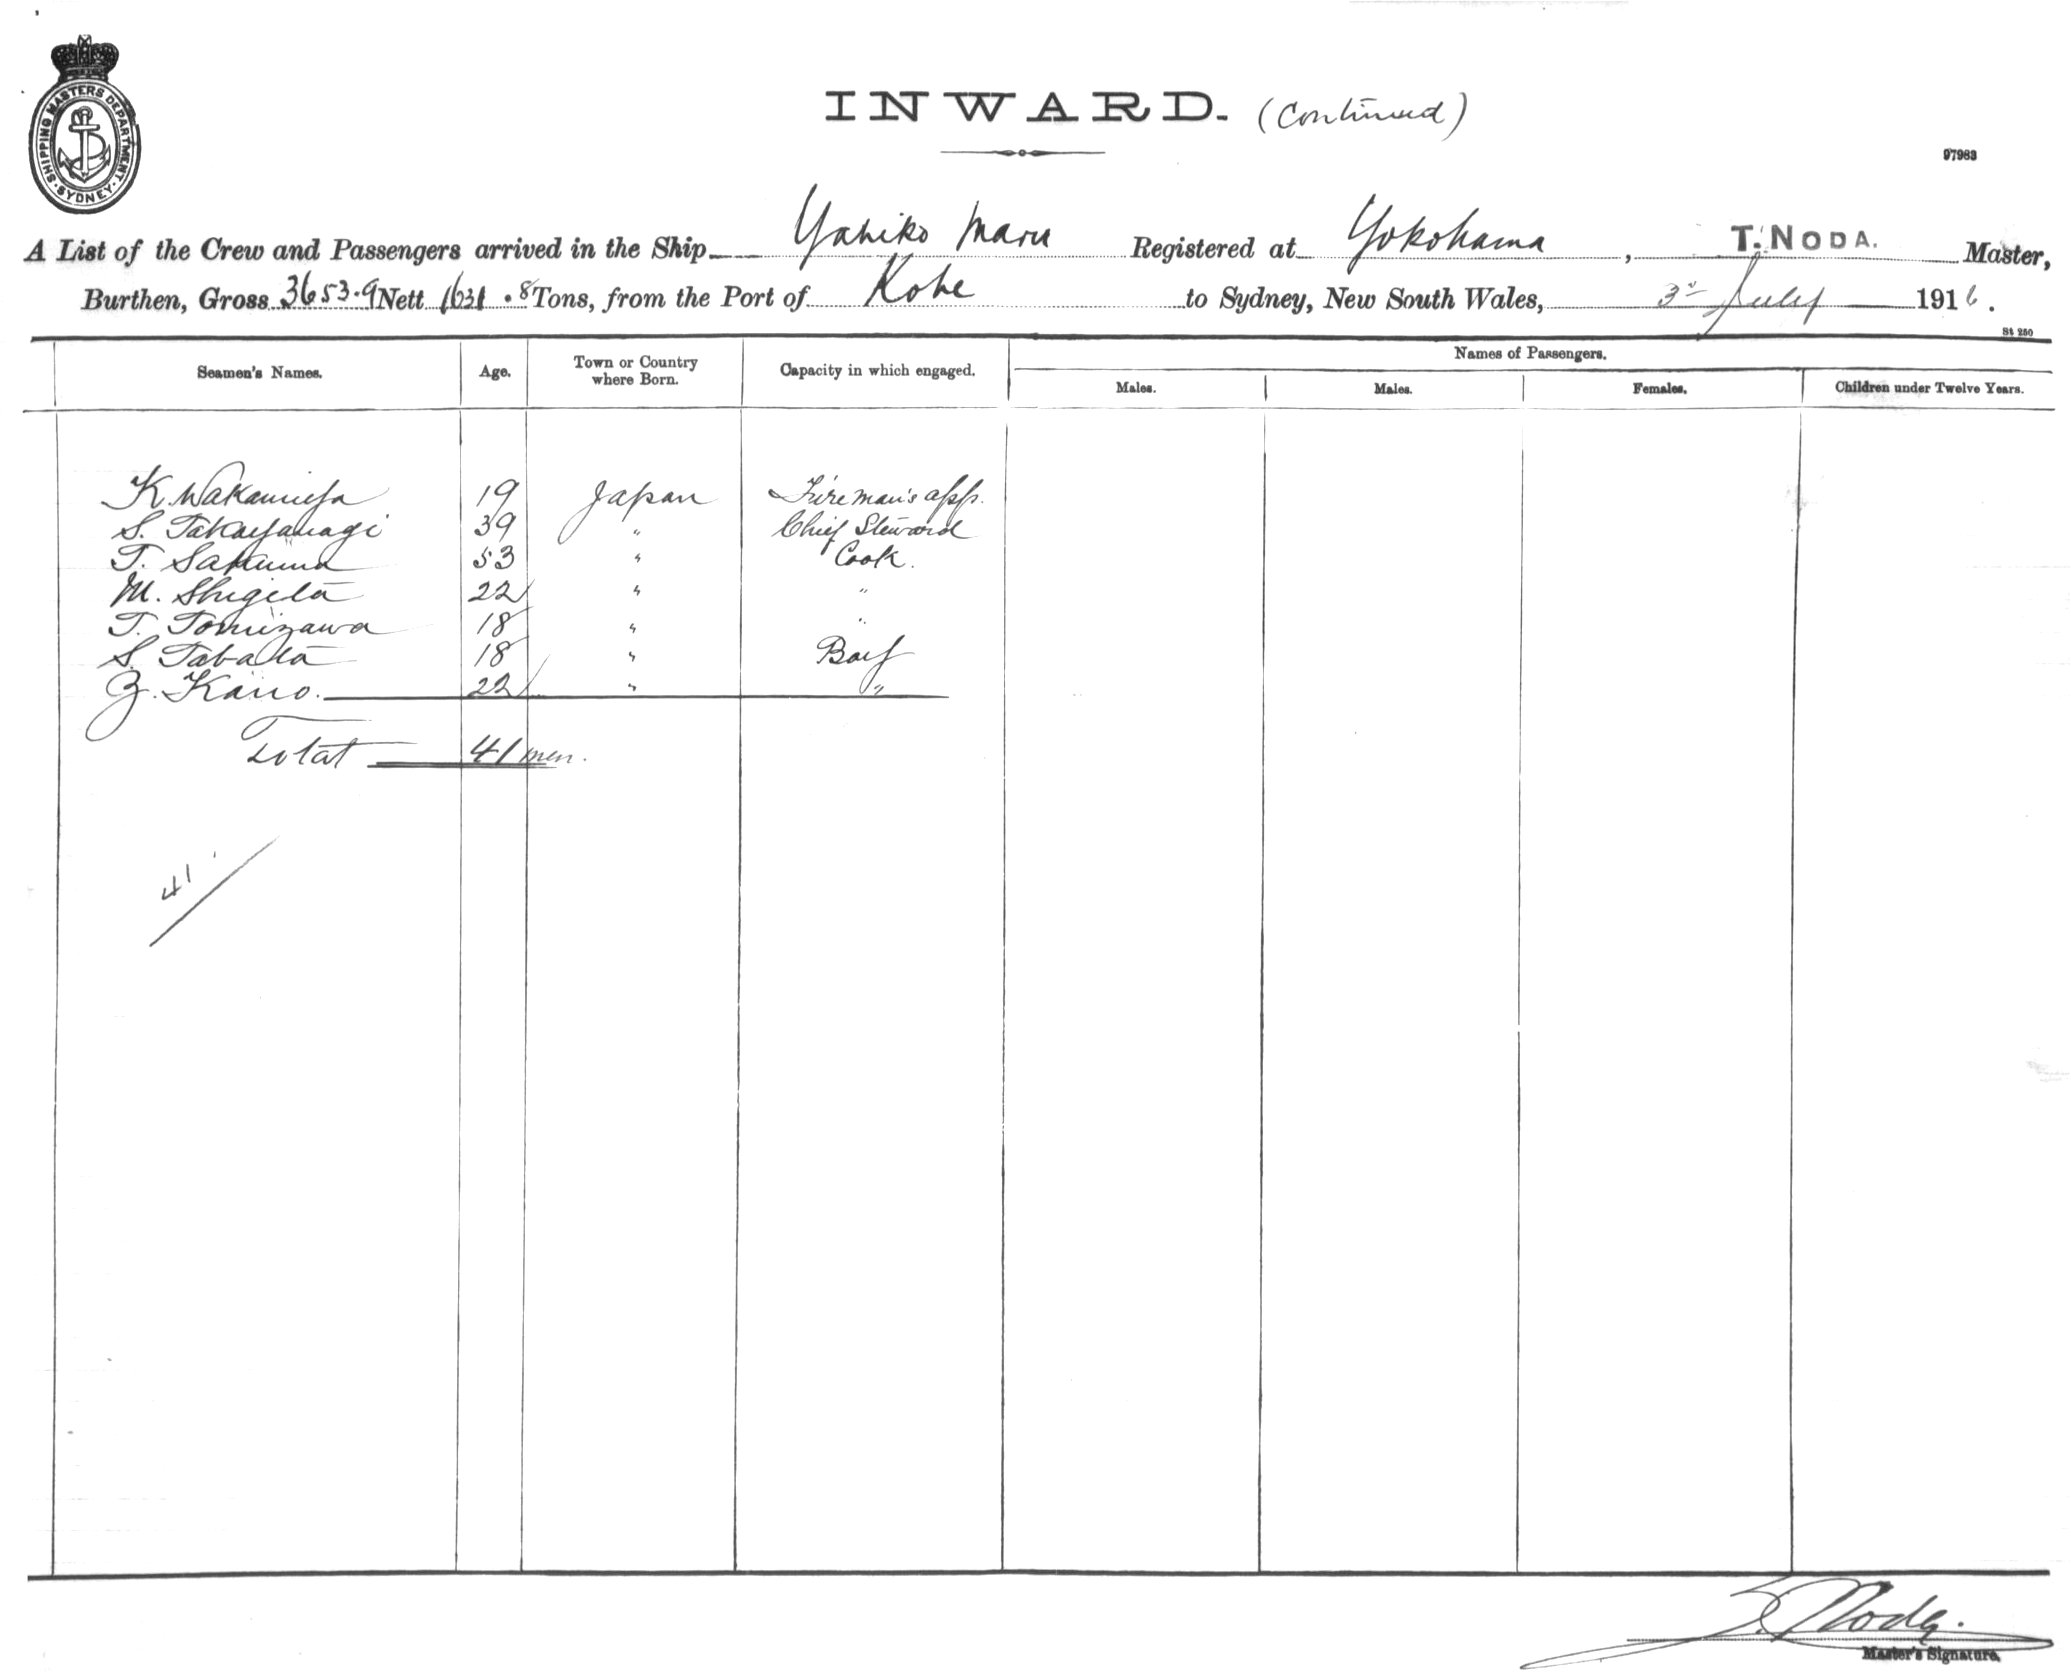 SHIPPING MASTERS DEPARTMENT · SYDNEY ·
INWARD. (Continued)
97983
A List of the Crew and Passengers arrived in the Ship Yahiko Maru Registered at Yokohama, T. NODA. Master,
Burthen, Gross 3653.9 Nett 1631.8 Tons, from the Port of Kobe to Sydney, New South Wales, 3rd July 1916.
St 250
Seamen's Names. Age. Town or Country where Born. Capacity in which engaged. Names of Passengers.
Males. Males. Females. Children under Twelve Years.
K. Wakamiya 19 Japan Fireman's app.
S. Takayanagi 39 " Chief Steward
T. Sakuma 53 " Cook.
M. Shigeta 22 " "
T. Tomizawa 18 " "
S. Tabata 18 " Boy
Z. Kano. 22 " "
Total 41 men.
41
T. Noda.
Master's Signature.